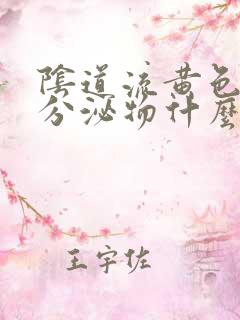 陰道流黄色
分泌物什麼
王宇佐